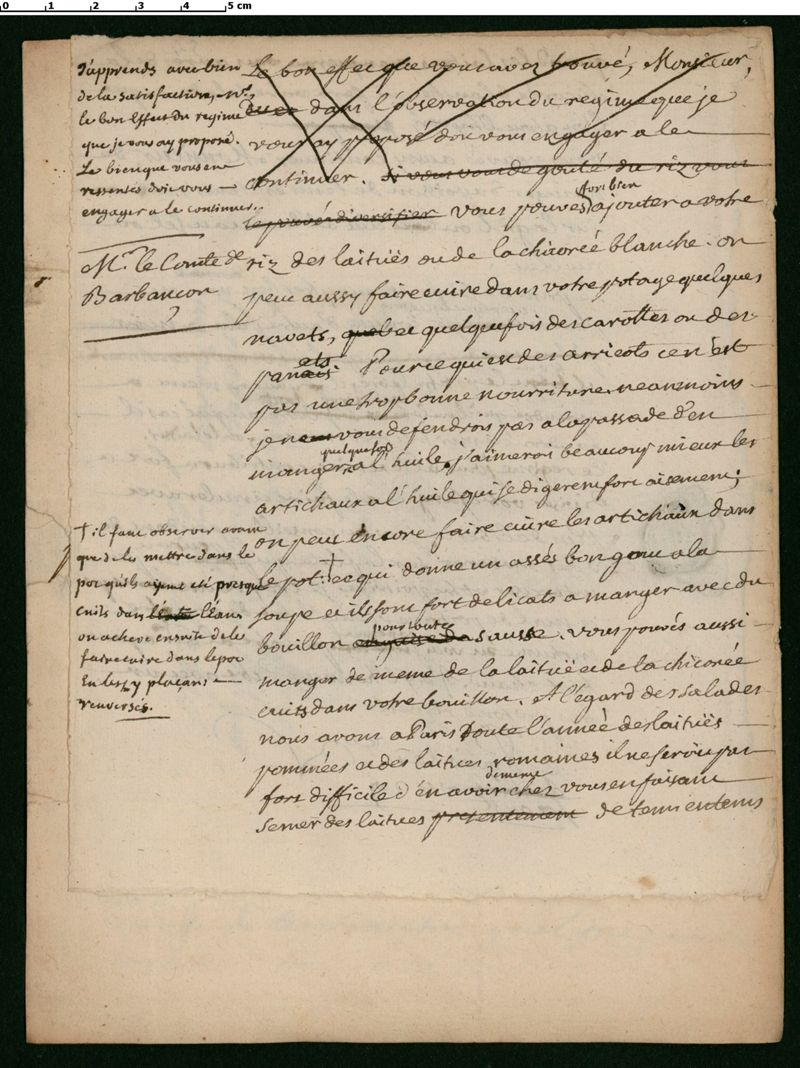 0 1 2 3 4 5 cm
J'apprends avec bien
de la satisfaction, Mr.,
le bon effect du regime
que je vous ay proposé.
Le bien que vous en
ressentés doit vous
engager a le continuer.
Mr. le Comte de
Barbançon
Le bon effect que vous avez trouvé, Monsieur,
dans l'observation du regime que je
vous ay proposé doit vous engager a le
continuer. si vous vous degouté du riz vous
le pouvés diversifier vous pouvés fort bien ajouter a votre
riz des laituës ou de la chicoréé blanche. on
peut aussy faire cuire dans votre potage quelques
navets, quelquefois des carottes ou des
panets Pource qui est des arricots ce n'est
pas une trop bonne nourriture. neanmoins
je ne vous defendrois pas a la passade d'en
manger quelquefois a l'huile. j'aimerois beaucoup mieux les
artichaux a l'huile qui se digerent fort aisement;
on peut encore faire cuire les artichaux dans
le pot: † ce qui donne un assés bon gout a la
soupe et ils sont fort delicats a manger avec du
bouillon pour toute sausse. vous pouvés aussi
manger de meme de la laituë et de la chicoréé
cuits dans votre bouillon. A l'égard des salades
nous avons a Paris toute l'anneé des laituës
pomméés et des laitues romaines il ne seroit pas
fort difficile d'en avoir de meme chez vous en faisant
semer des laitues presentement de tems en tems
† il faut observer avant
que de les mettre dans le
pot quils ayent eté presque
cuits dans l'eau
on acheve ensuite de les
faire cuire dans le pot
En les y plaçant
renversés.